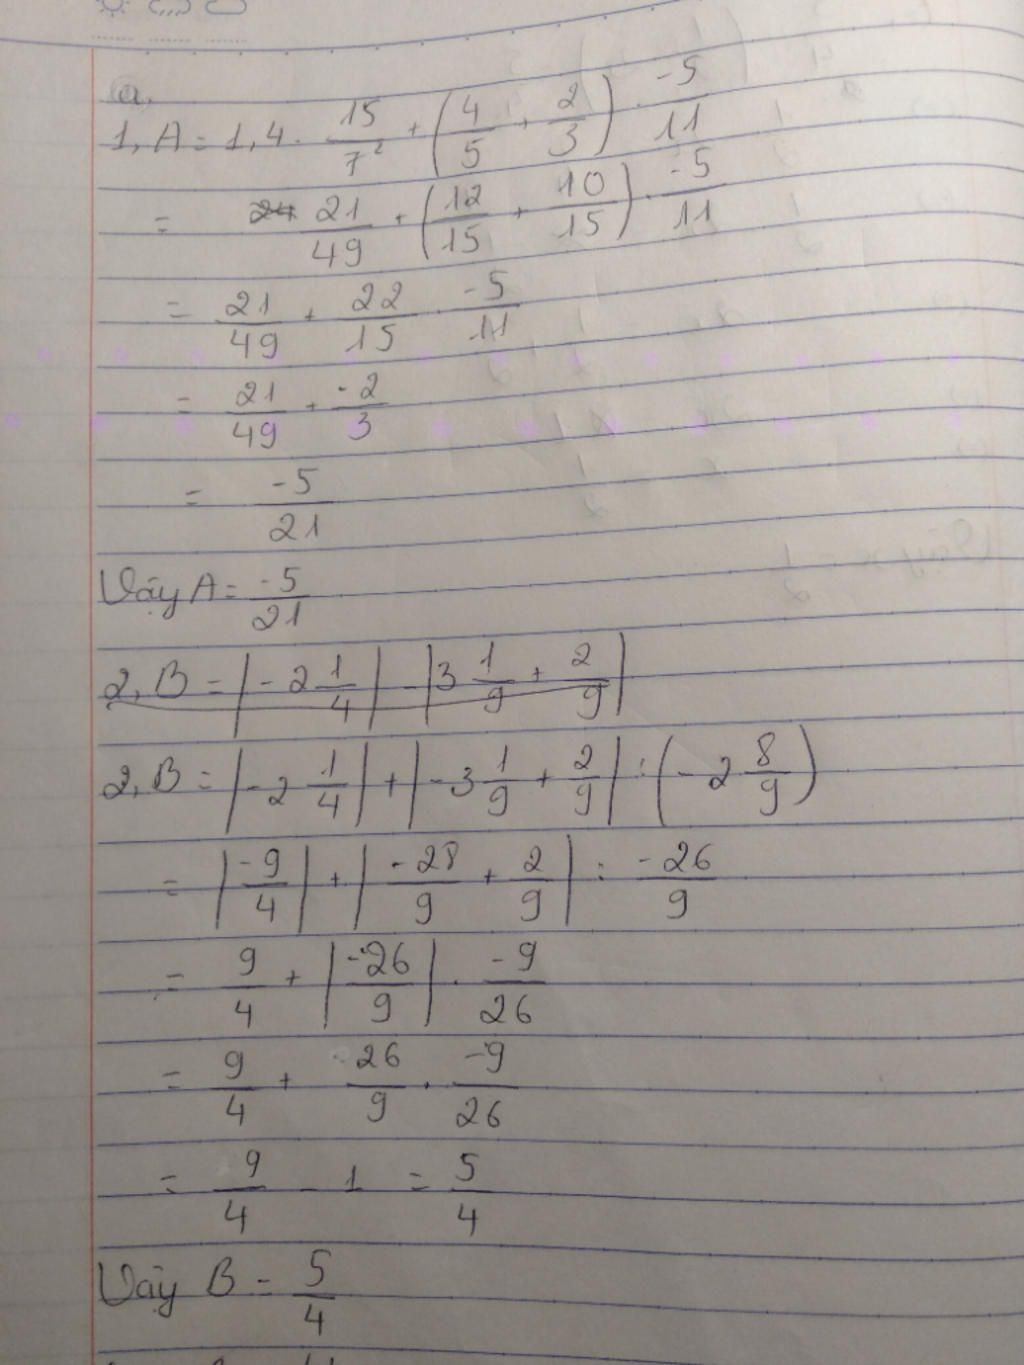 a,
1, A = 1,4 . 15/7² + (4/5 + 2/3) . -5/11
= 21/49 + (12/15 + 10/15) . -5/11
= 21/49 + 22/15 . -5/11
= 21/49 + -2/3
= -5/21
Vậy A = -5/21
2, B = |-2 1/4| - |3 1/9 + 2/9|
2, B = |-2 1/4| + |-3 1/9 + 2/9| : (-2 8/9)
= |-9/4| + |-28/9 + 2/9| : -26/9
= 9/4 + |-26/9| . -9/26
= 9/4 + 26/9 . -9/26
= 9/4 - 1 = 5/4
Vậy B = 5/4